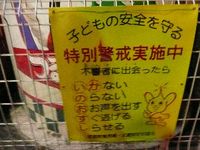 子どもの安全を守る
特別警戒実施中
不審者に出会ったら
いかない
のらない
おお声を出す
すぐ逃げる
しらせる